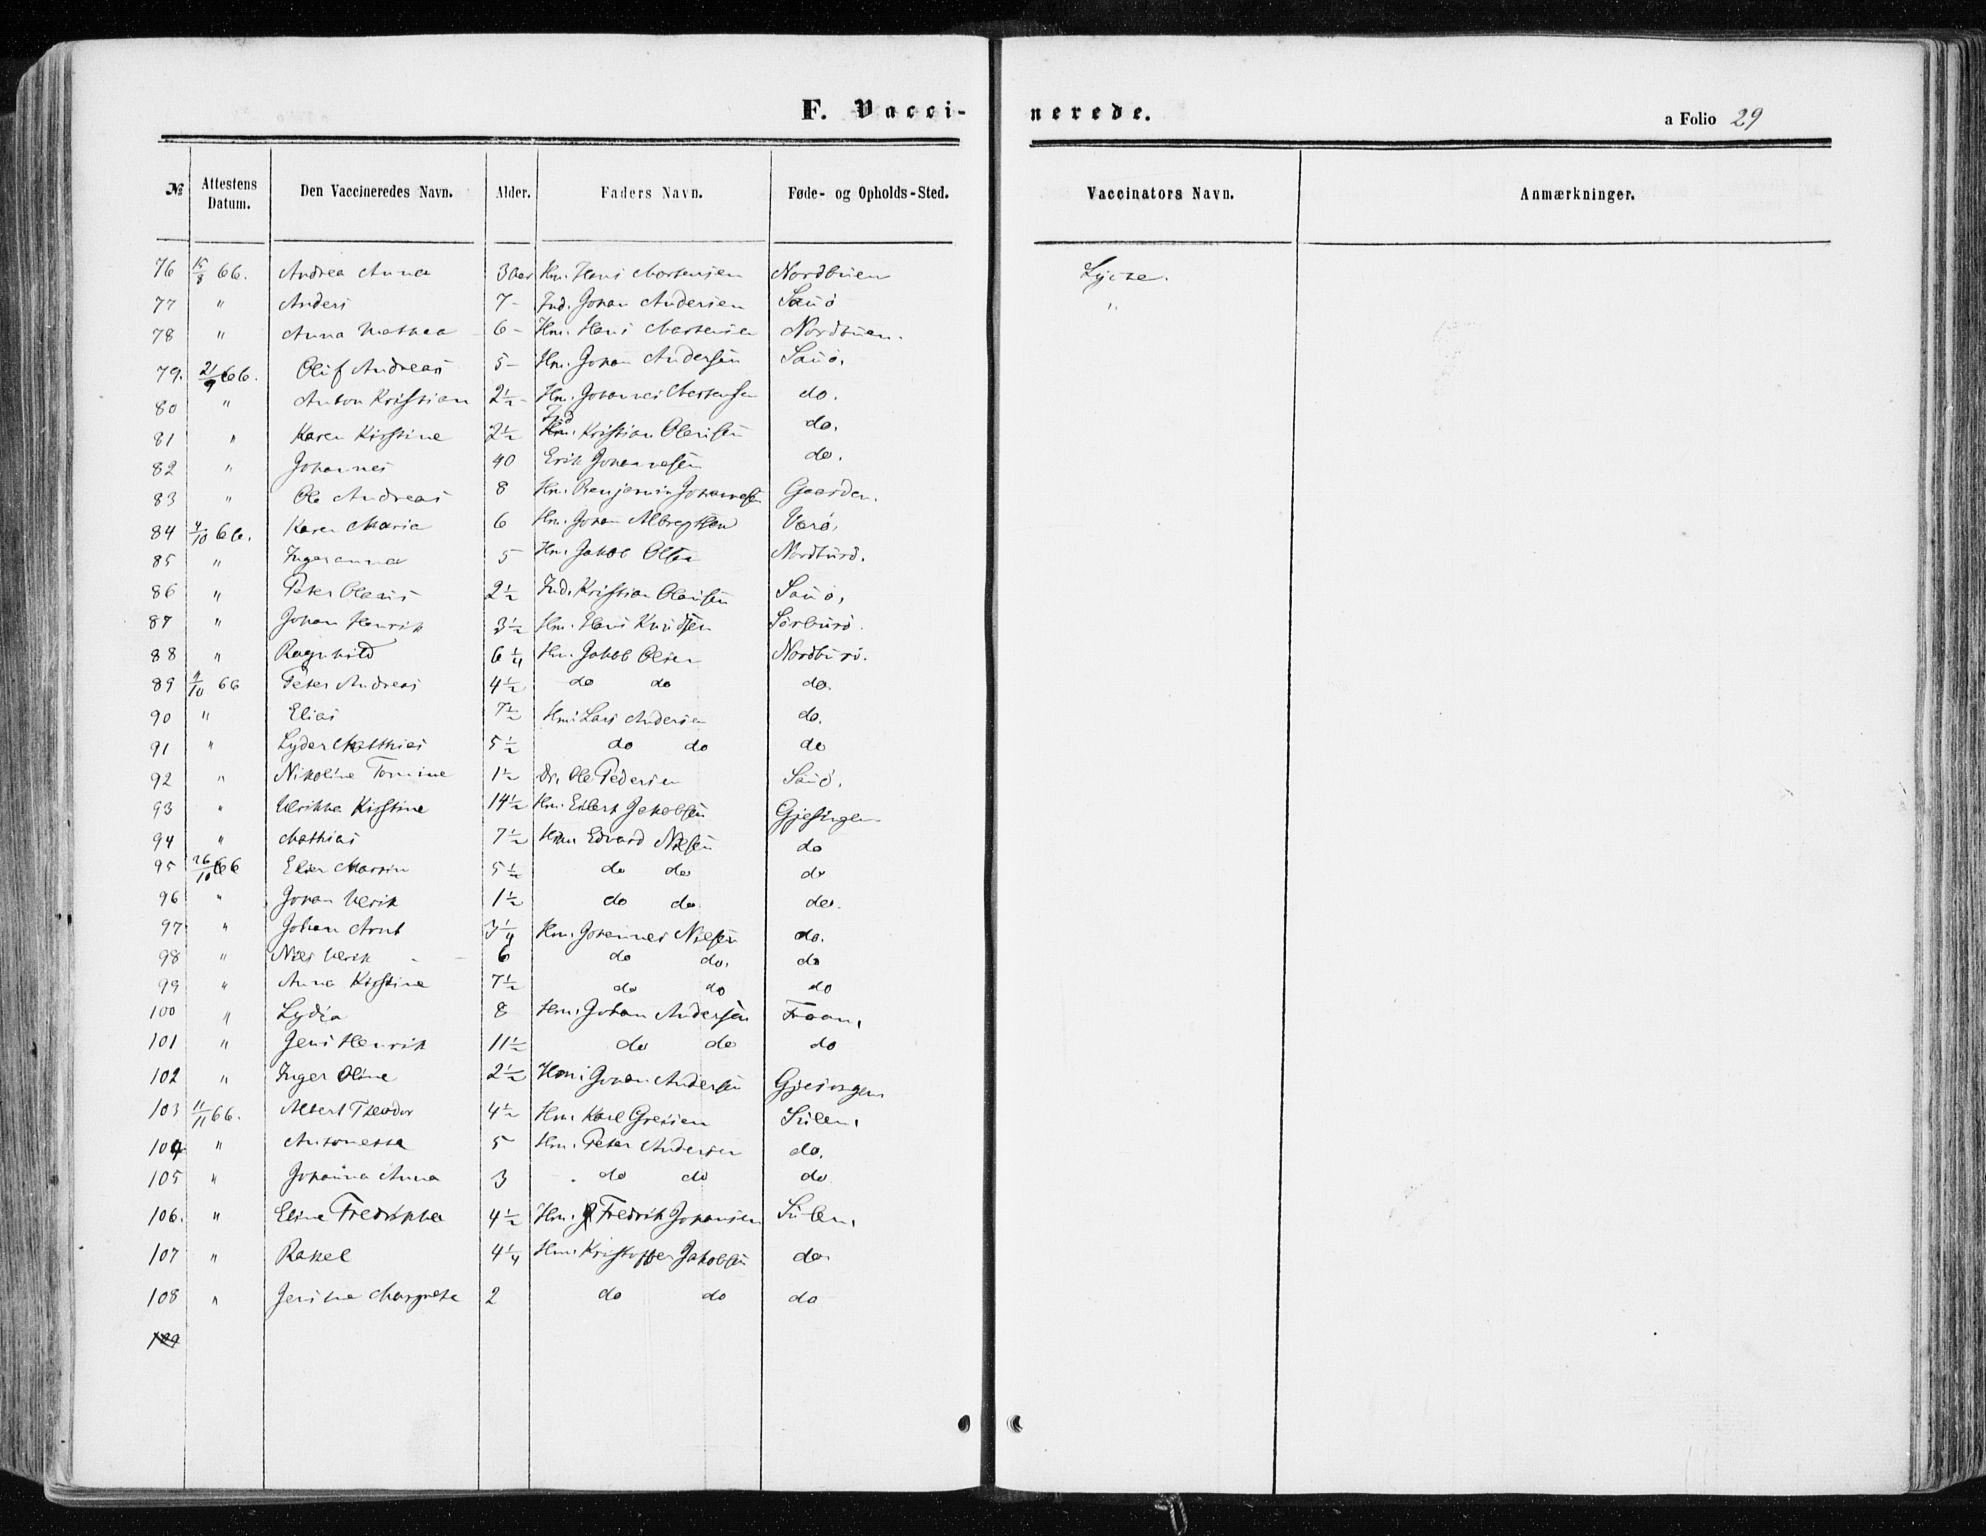 F. Vacci-nerede.
a Folio 29
№ Attestens Datum. Den Vaccineredes Navn. Alder. Faders Navn. Føde- og Opholds-Sted. Vaccinators Navn. Anmærkninger.
76 15/8 66. Andrea Anna 3 aar Hm. Hans Mortensen Nordbuen
77 " Anders 7 - Ind. Johan Andersen Sauø "
78 " Anna Mathea 6 - Hm. Hans Mortensen Nordbuen.
79. 21/9 66. Oluf Andreas 5 - Hm. Johan Andersen Sauø.
80 " Anton Kristian 2½ - Hm. Johannes Mortensen do.
81 " Karen Kirstine 2½ Ind Kristian Olausen do.
82 " Johannes 40 Erik Johannesen do.
83 " Ole Andreas 8 Hm. Benjamin Johannesen Gaarden.
84 4/10 66. Karen Maria 6 Hm. Johan Albregtsen Værø.
85 " Inger Anna 5 Hm. Jakob Olsen Nordburø.
86 " Peter Olaus 2½ Ind. Kristian Olausen Sauø,
87 " Johan Henrik 3½ Hm. Hans Knudsen Sørburø.
88 " Ragnhild 6¼ Hm. Jakob Olsen Nordburø.
89 4/10 66 Peter Andreas 4½ do do do.
90 " Elias 7½ Hm. Lars Andersen do.
91 " Lyder Matthias 5½ do do do
92 " Nikoline Tomine 1½ Dr. Ole Pedersen Sauø.
93 " Ulrikka Kirstine 14½ Hm. Ehlert Jakobsen Gjesingen
94 " Mathias 7½ Hm Edvard Nilsen do
95 26/10 66 Elen Martin 5½ do do do
96 " Johan Ulrik 1½ do do. do.
97 " Johan Arnt 3¼ Hm. Johannes Nilsen do.
98 " Nils Ulrik 6 do do. do
99 " Anna Kirstine 7½ do do do
100 " Lydia 8 Hm. Johan Andersen Froan,
101 " Jens Henrik 11½ do do do
102 " Inger Oline 2½ Hm. Johan Andersen Gjesingen
103 11/11 66. Albert Theodor 4½ Hm. Karl Gresien Sulen,
104 " Antonetta 5 Hm. Peter Andersen do.
105 " Johanna Anna 3 do do do
106. " Eline Fredrikka 4½ Hm. Fredrik Johansen Sulen,
107 " Rakel 4¼ Hm. Kristoffer Jakobsen do
108 " Jensine Margreta 2 do do do
109